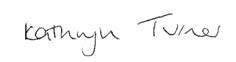 Kathryn Turner